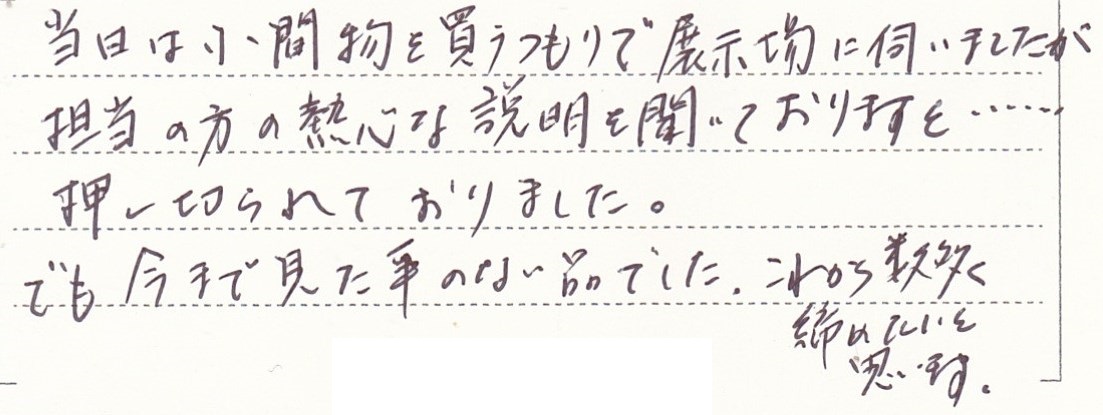 当日は小間物を買うつもりで展示場に伺いましたが
担当の方の熱心な説明を聞いておりますと……
押し切られておりました。
でも今まで見た事のない品でした。これから数多く
締めたいと
思います。